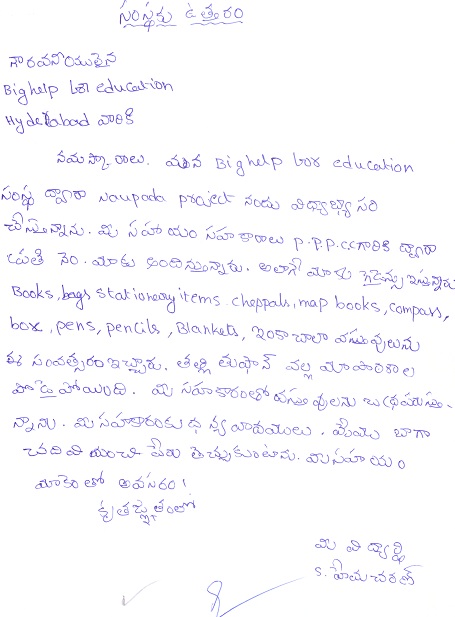 సంస్థకు ఉత్తరం
గౌరవనీయులైన
Bighelp for education
Hyderabad వారికి
నమస్కారాలు. మన Bighelp for education
సంస్థ ద్వారా Naupada project నందు విద్యాభ్యాసం
చేస్తున్నాను. మీ సహాయం సహకారాలు P.P.P.CC గారికి ద్వారా
ప్రతి నెం. మాకు అందిస్తున్నారు. అలాగే మాకు ఇస్తున్నారు
Books, bags stationary items. cheppals, map books, compass,
box, pens, pencils, Blankets, ఇంకా చాలా వస్తువులను
ఈ సంవత్సరం ఇచ్చారు. తిత్లీ తుఫాన్ వల్ల మా పాఠశాల
పోయింది. మీ సహకారంతో వస్తువులను
న్నాను. మీ సహకారంకు ధన్యవాదములు. మేము బాగా
చదివి మంచి పేరు తెచ్చుకుంటాను. మీ సహాయం
మాకెంతో అవసరం!
కృతజ్ఞతంలో
మీ విద్యార్థి
S. హేమచరణ్